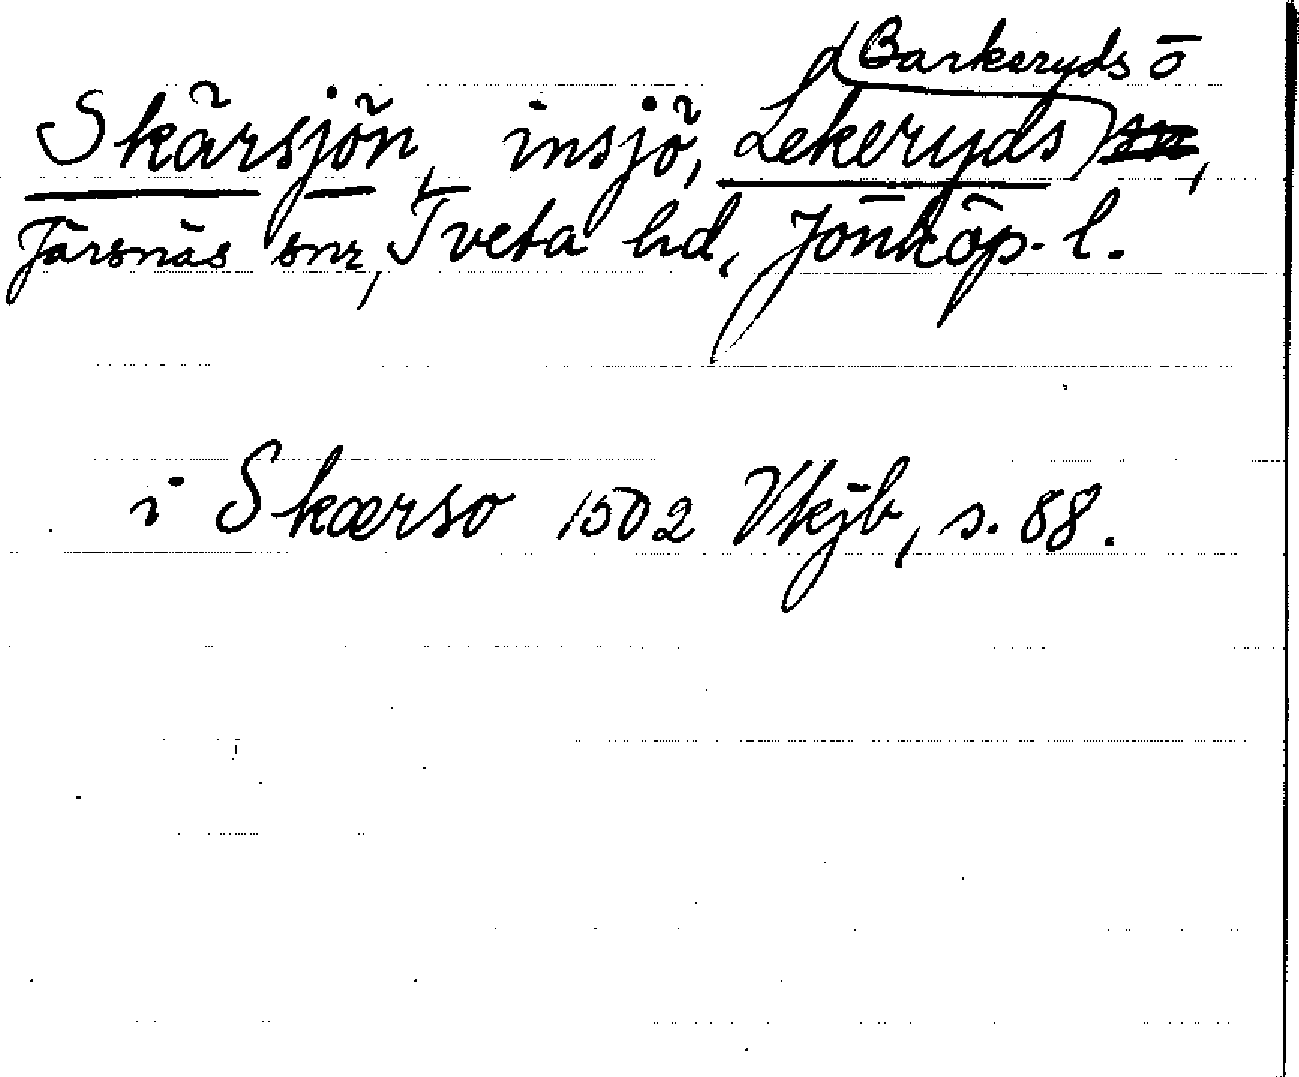 Barkeryds o
Skärsjön, insjö, Lekeryds sn,
Järsnäs snr, Tveta hd, Jönköp. l.
i Skærso 1502 Vkjb, s. 88.